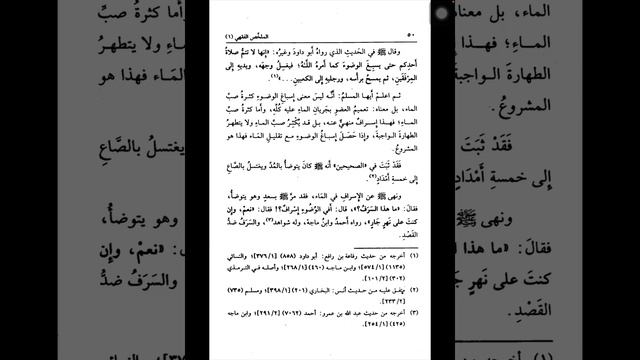 ٥٠
الملخص الفقهي (١)
وقال ﷺ في الحديث الذي رواه أبو داود وغيره: «إنها لا تتم صلاة
أحدكم حتى يسبغ الوضوء كما أمره الله؛ فيغسل وجهه، ويديه إلى
المرفقين، ثم يمسح برأسه، ورجليه إلى الكعبين...»(١).
ثم اعلم أيها المسلم: أنه ليس معنى إسباغ الوضوء كثرة صب
الماء، بل معناه: تعميم العضو بجريان الماء عليه كله، وأما كثرة صب
الماء؛ فهذا إسراف منهي عنه، بل قد يكثر صب الماء ولا يتطهر
الطهارة الواجبة، وإذا حصل إسباغ الوضوء مع تقليل الماء فهذا هو
المشروع.
فقد ثبت في «الصحيحين» أنه ﷺ كان يتوضأ بالمد ويغتسل بالصاع
إلى خمسة أمداد(٢).
ونهى ﷺ عن الإسراف في الماء، فقد مر ﷺ بسعد وهو يتوضأ،
فقال: «ما هذا السرف؟»، قال: أفي الوضوء إسراف؟! فقال: «نعم، وإن
كنت على نهر جار»، رواه أحمد وابن ماجة، وله شواهد(٣)، والسرف ضد
القصد.
(١) أخرجه من حديث رفاعة بن رافع: أبو داود (٨٥٨) [٣٧٦/١]؛ والنسائي
(١١٣٥) [٥٧٤/١]؛ وابن ماجه (٤٦٠) [٢٦٨/١]؛ وأصله في الترمذي
(٣٠٢) [١٠٢/٢].
(٢) متفق عليه من حديث أنس: البخاري (٢٠١) [٣٩٨/١]؛ ومسلم (٧٣٥)
[٢٣٣/٢].
(٣) أخرجه من حديث عبد الله بن عمرو: أحمد (٧٠٦٢) [٢٩١/٢]؛ وابن ماجه
(٤٢٥) [٢٥٤/١].